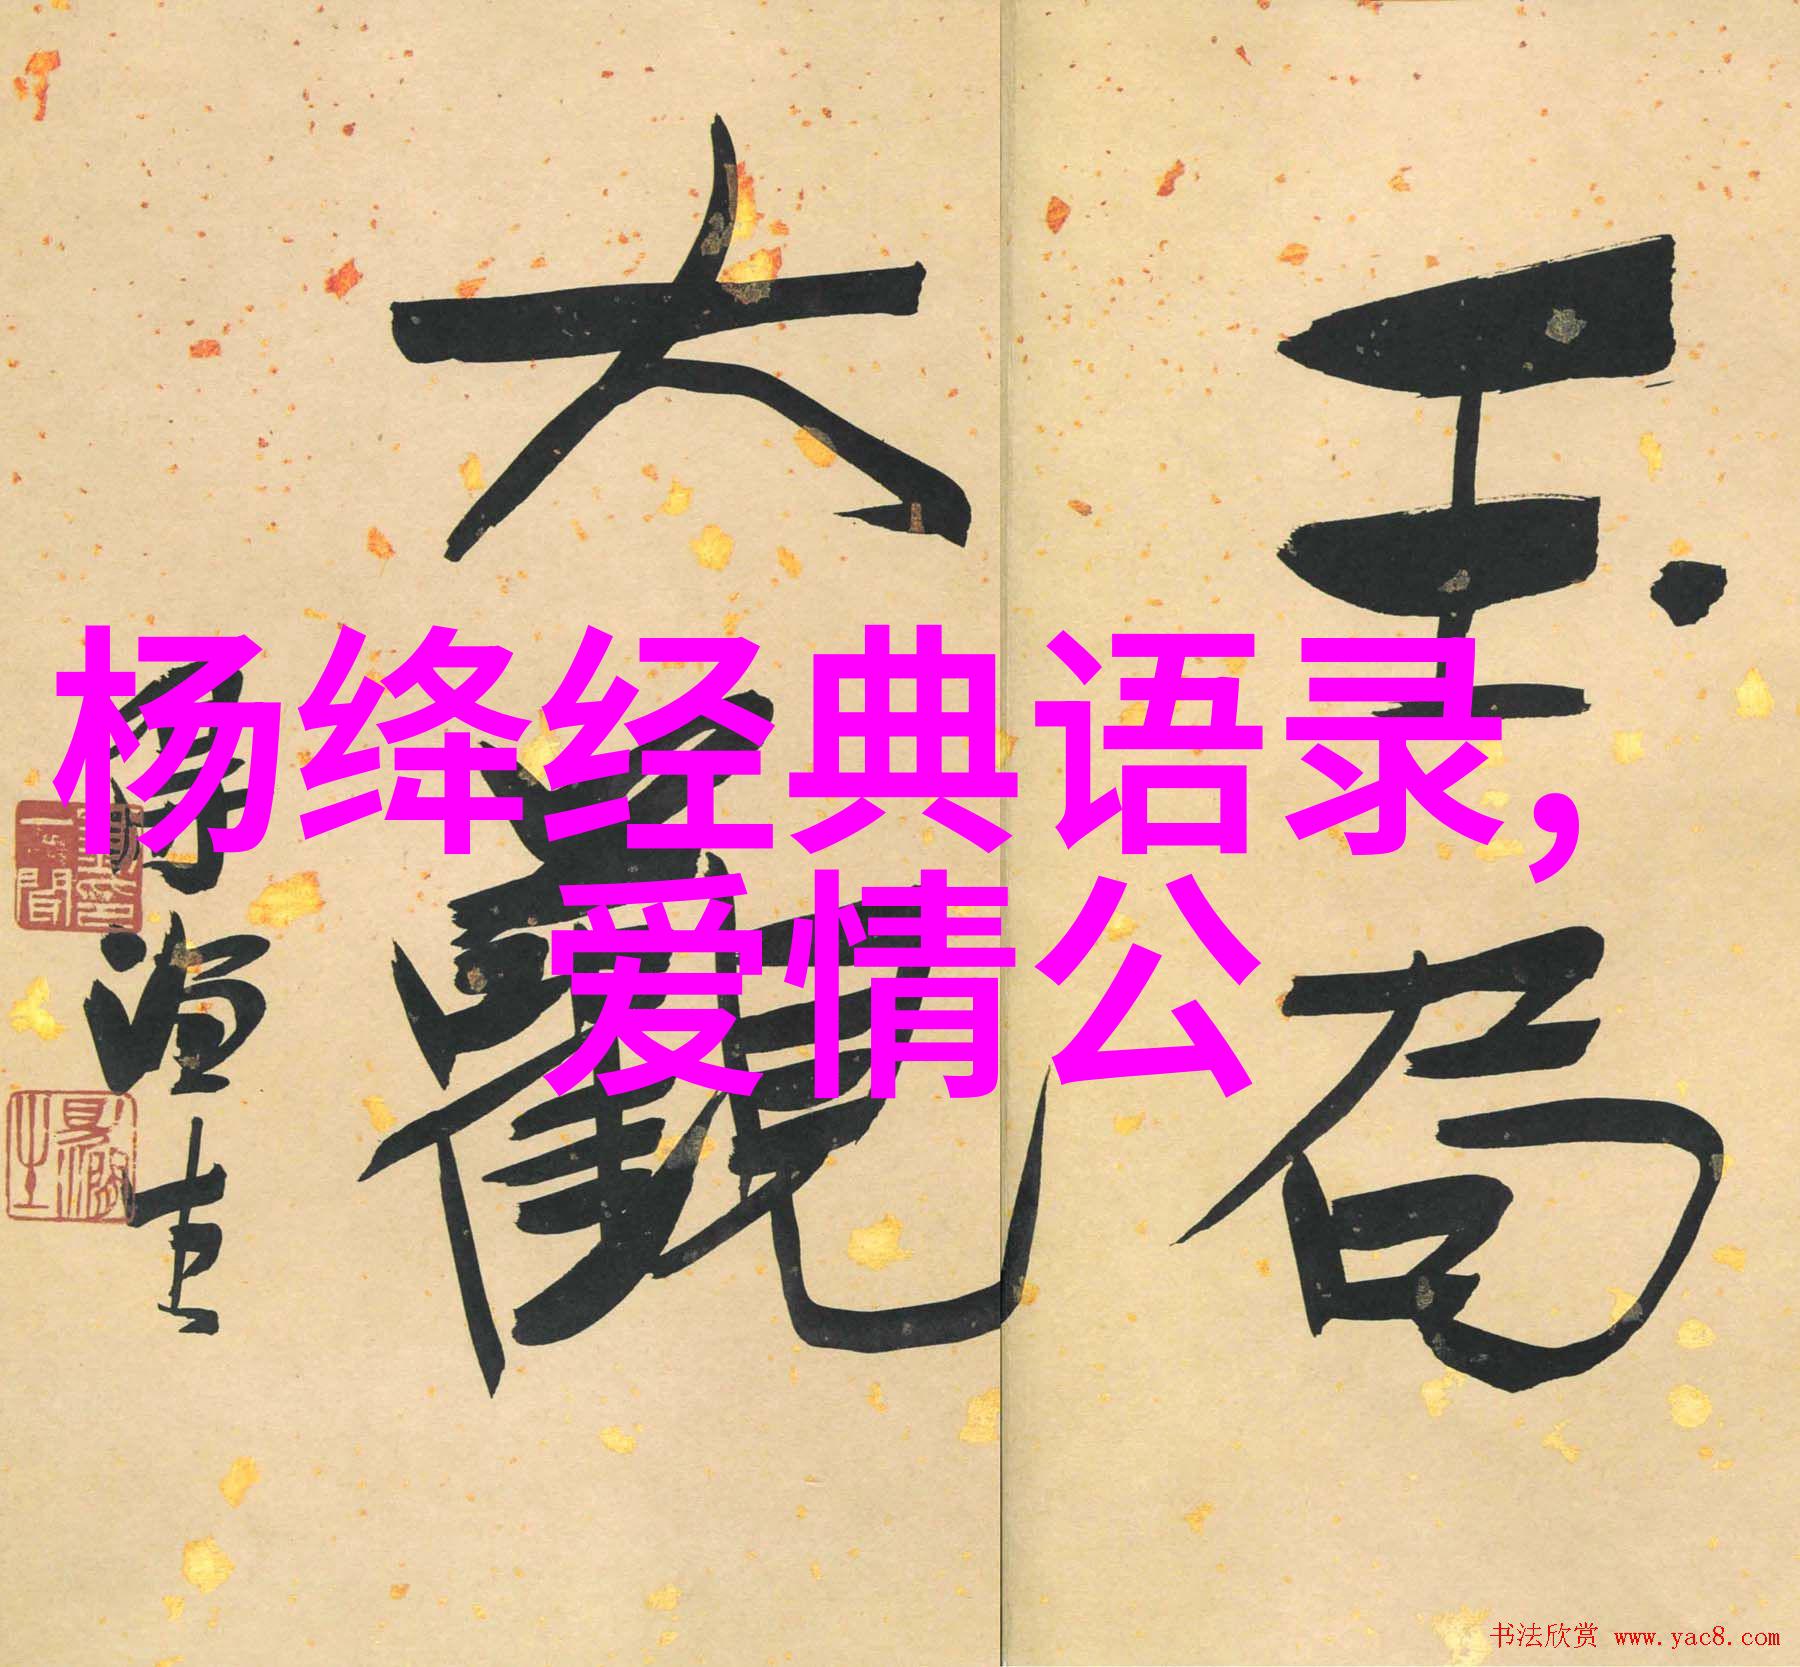 杨绛经典语录,
爱情公
玉局
大觀
书法欣赏 www.yac8.com